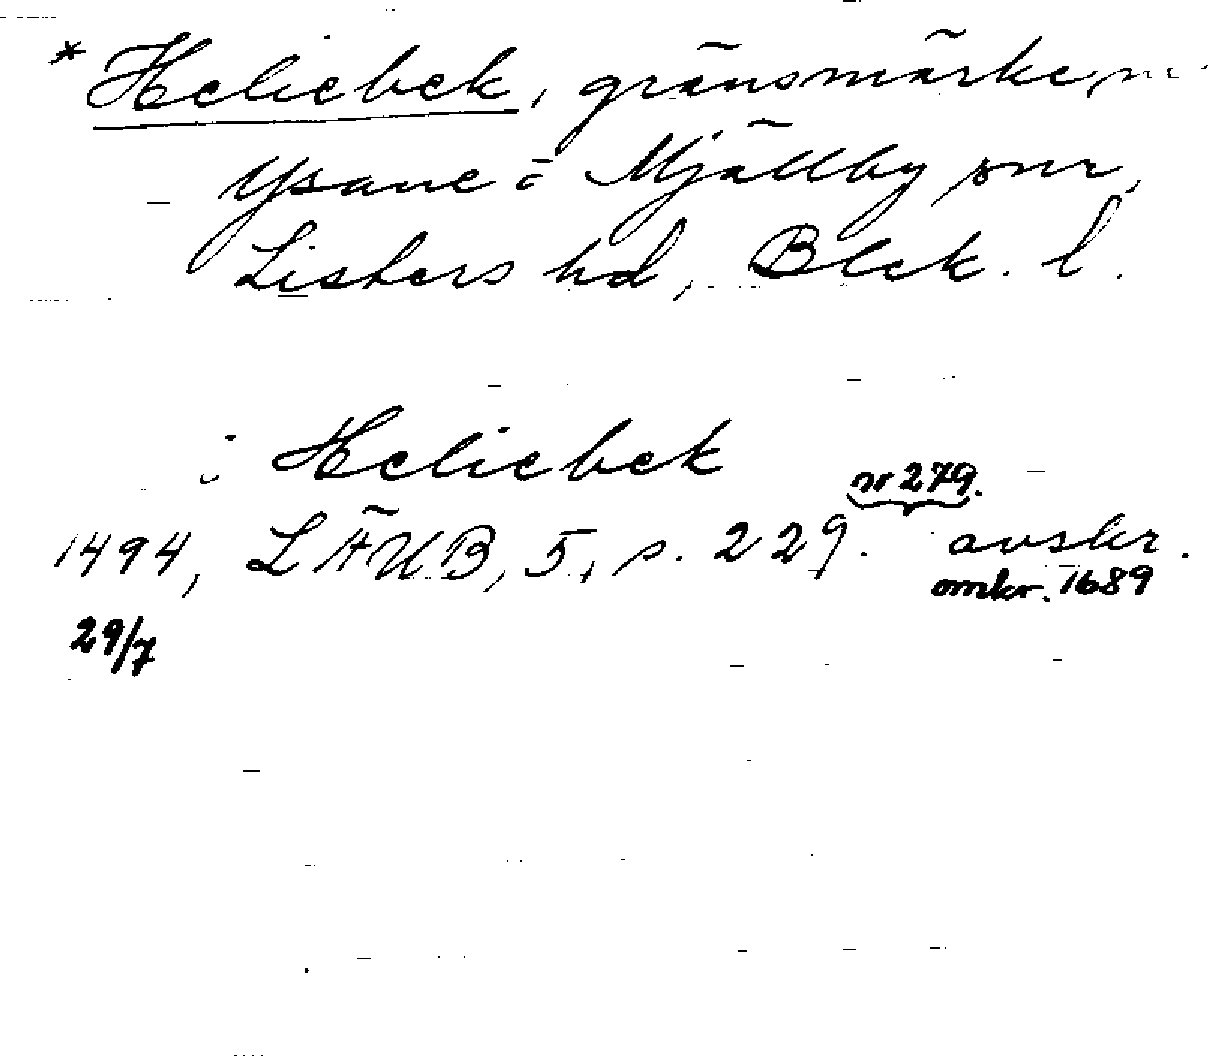 * Heliebek, gränsmärke, m
Ysane o Mjällby snr,
Listers hd, Blek. l.
i Heliebek
nr 279.
1494, LÄUB, 5, s. 229. avskr.
omkr. 1689
29/7